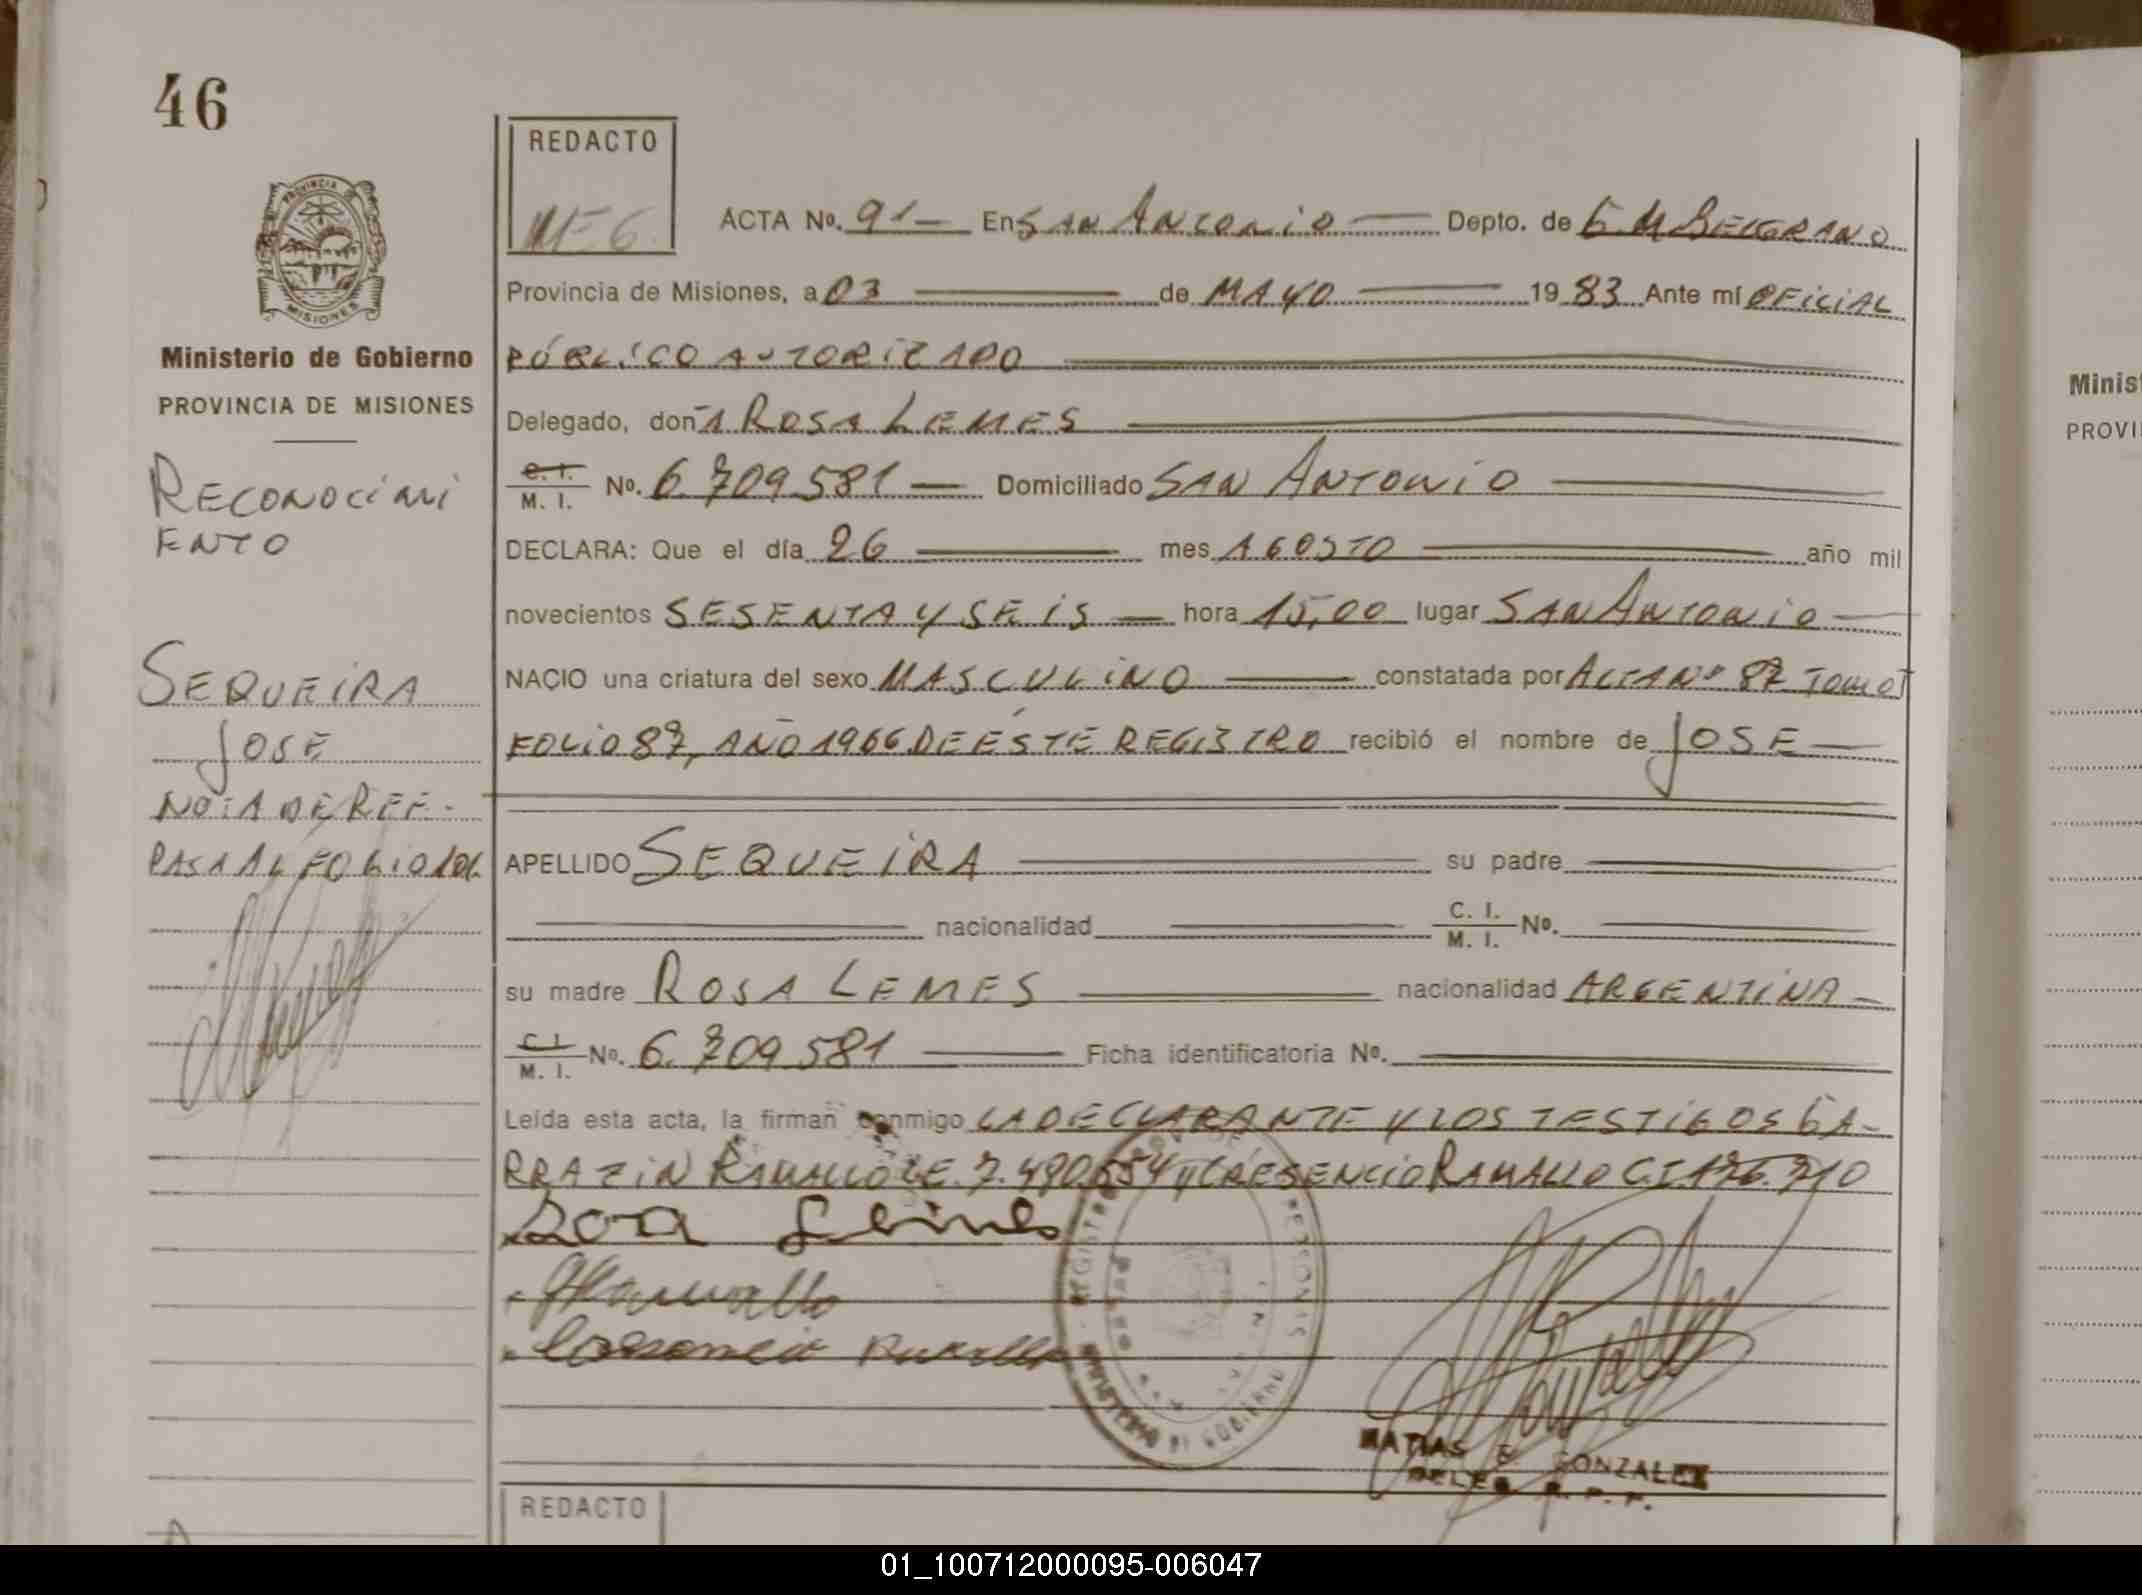 46
REDACTO
PROVINCIA DE
MISIONES
Ministerio de Gobierno
PROVINCIA DE MISIONES
RECONOCIMI
ENTO
SEQUEIRA
JOSE
NOTA DE REF.
PASA AL FOLIO 101.
ACTA No. 91— En SAN ANTONIO — Depto. de G M BELGRANO
Provincia de Misiones, a 03 — de MAYO — 19 83 Ante mí OFICIAL
PÚBLICO AUTORIZADO
Delegado, doñA ROSA LEMES
C. I.
M. I. No. 6.709.581 — Domiciliado SAN ANTONIO
DECLARA: Que el día 26 — mes AGOSTO — año mil
novecientos SESENTA Y SEIS — hora 15,00 lugar SAN ANTONIO —
NACIO una criatura del sexo MASCULINO — constatada por ACTA Nº 87 TOMO I
FOLIO 87, AÑO 1966 DE ÉSTE REGISTRO recibió el nombre de JOSE —
APELLIDO SEQUEIRA — su padre —
— nacionalidad — C. I.
M. I. No. —
su madre ROSA LEMES — nacionalidad ARGENTINA —
C. I.
M. I. No. 6.709.581 — Ficha identificatoria No. —
Leída esta acta, la firman conmigo LA DECLARANTE Y LOS TESTIGOS GA-
RRAZIN RAMALLO LE. 7.490.654 y CRESENCIO RAMALLO C.I. 176.710
MATIAS E GONZALEZ
DELEG. R. P. P.
REDACTO
Minis
PROVI
01_100712000095-006047